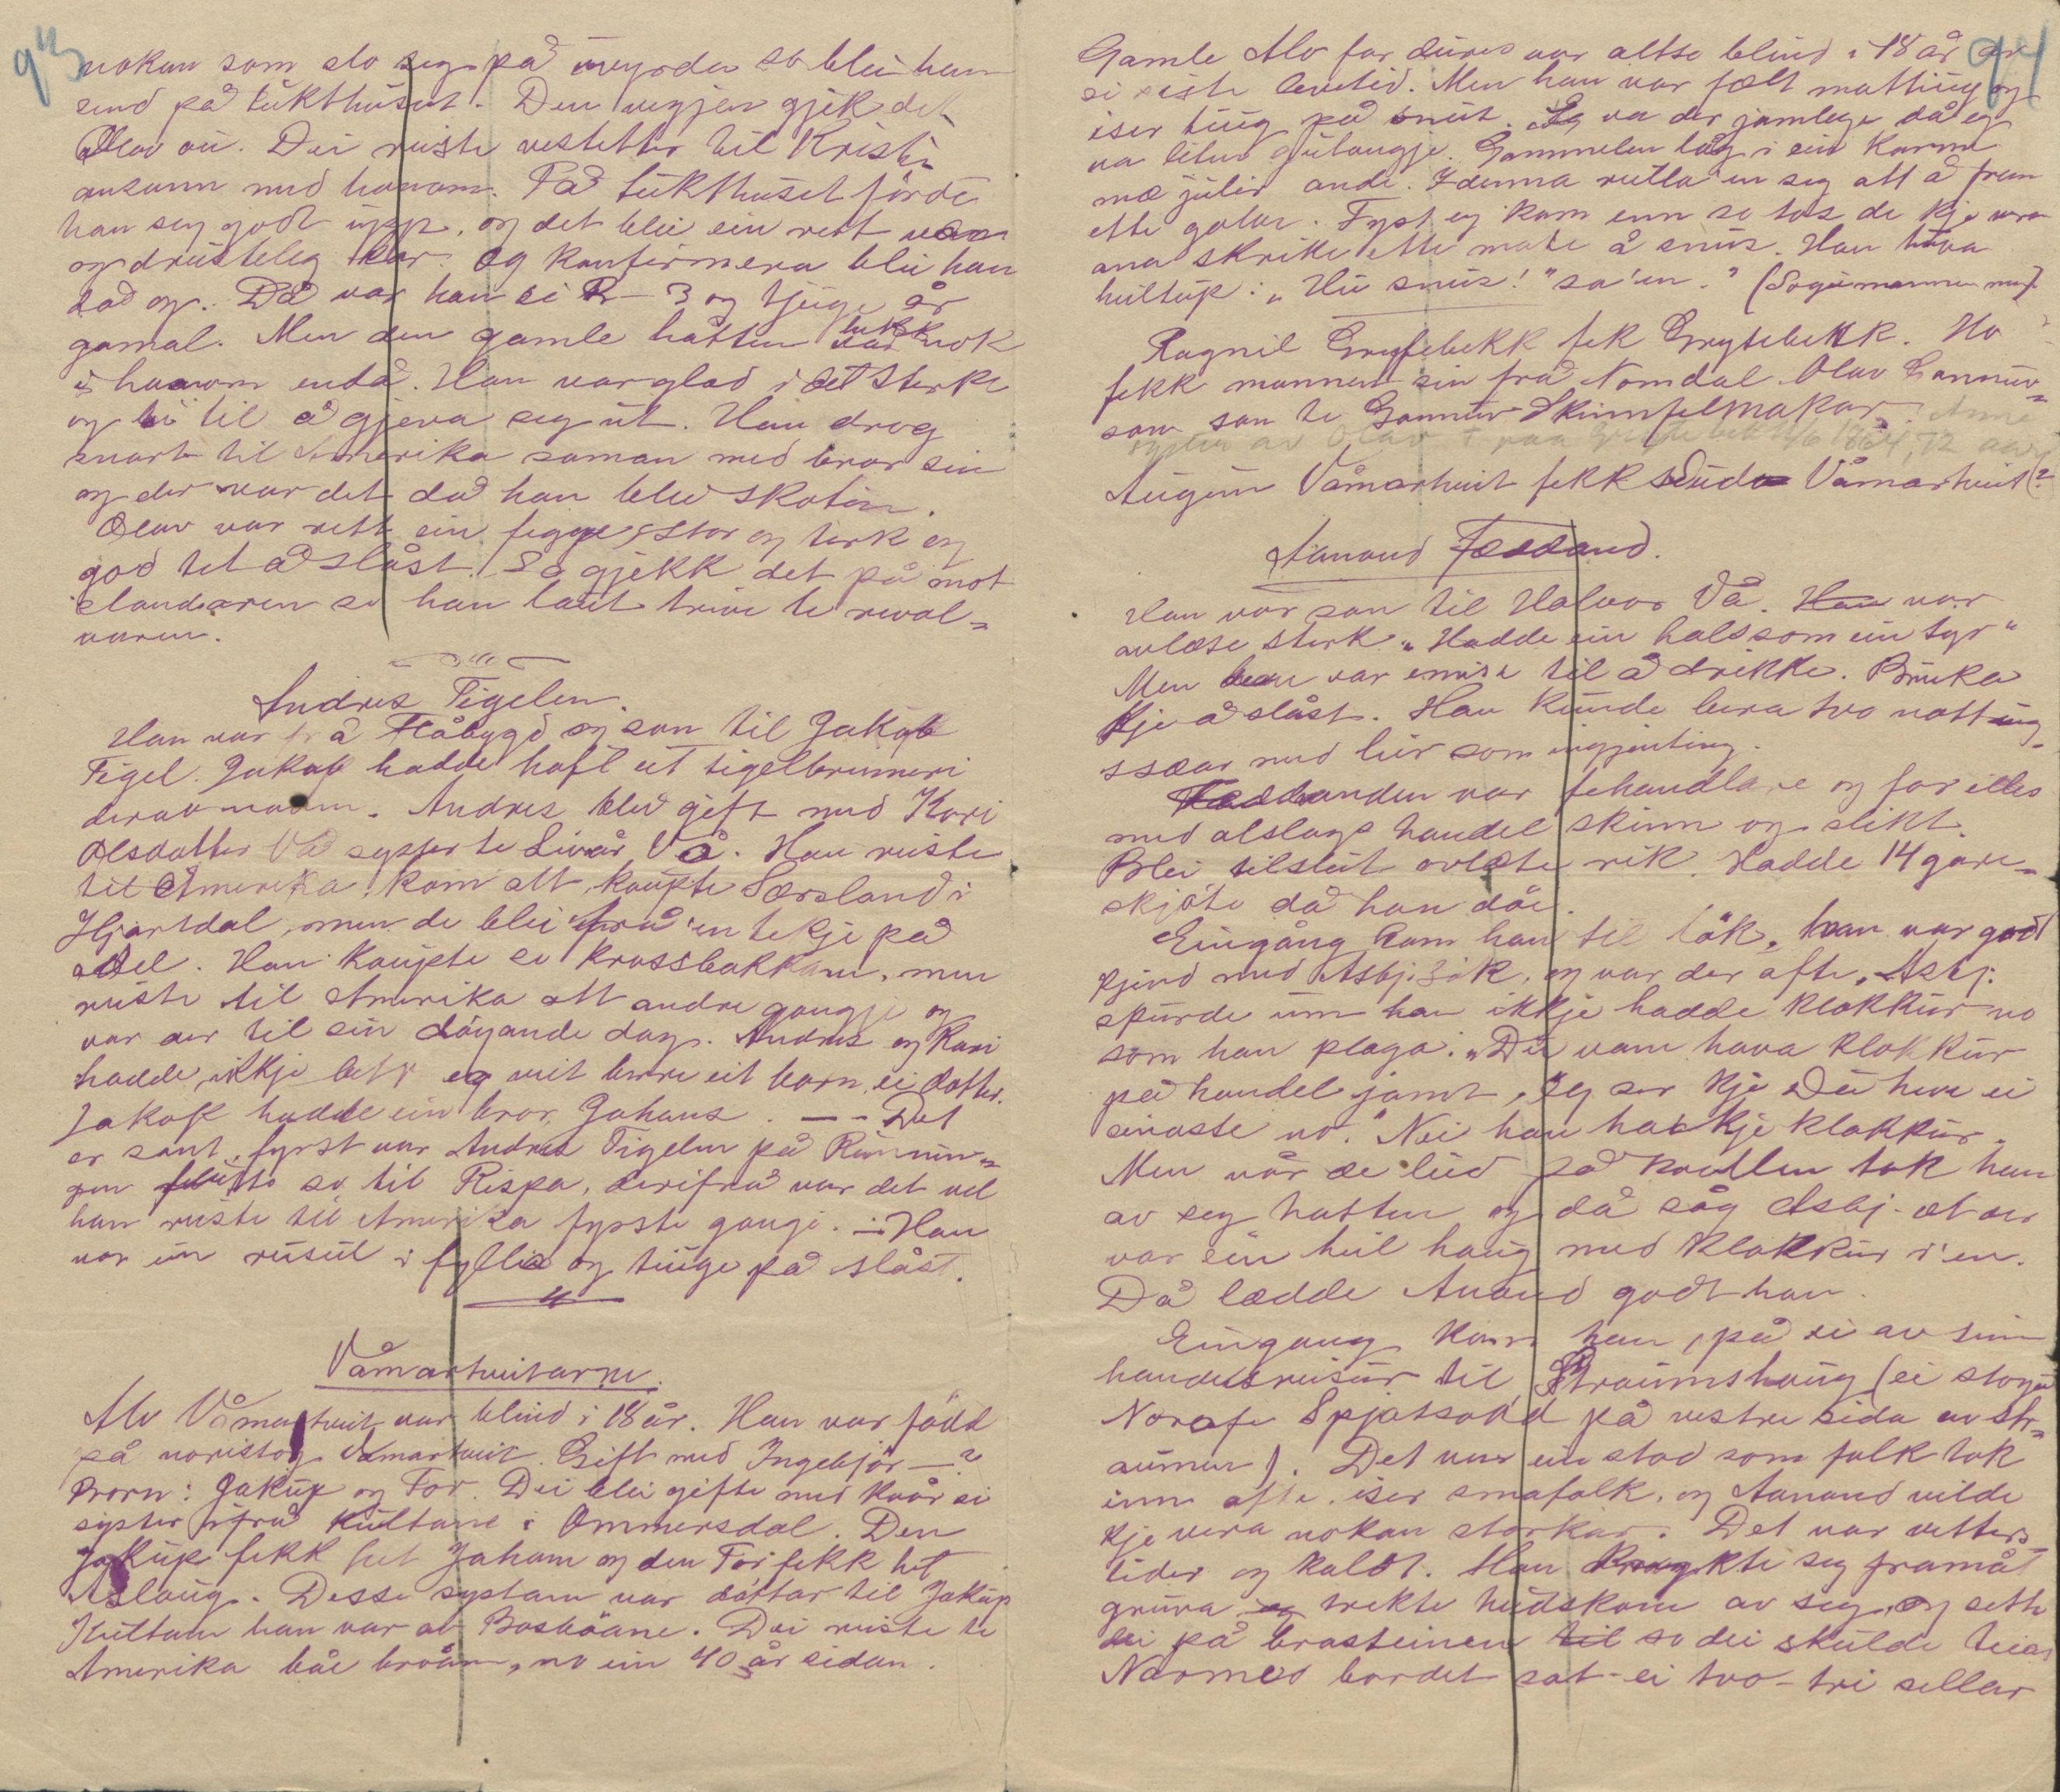 93
nokon som slo seg på uvyrda so blei han
send på tukthuset. Den vegjen gjek det
Olav ou. Dei reiste vestetter til Kristi
ansann med honom. På tukthuset förde
han seg godt upp, og det blei ein rett van
og drusteleg kar. Og konfirmera blei han
då og. Då var han ei 3 og tjuge år
gamal. Men den gamle hatten var nok
i honom endå. Han var glad i det sterke
og til å gjeva seg ut. Han drog
snart til Amerika saman med bror sin
og der var det då han blei skoten.
Olav var rett ein fegge, stor og sterk og
god til å slåst. So gjekk det på mot
slandaren so han laut trive te reval=
varen.
Andres Tigelen.
Han var frå Flåbygd og son til Jakob
Tigel. Jakob hadde haft eit tigelbrenneri
deravnamn. Andres blei gift med Kari
Olsdatter Vå syster te Sivår Vå. Han reiste
til Amerika, kom att, kaupte Særsland i
Hjartdal, men de blei frå'en tekje på
del. Han kaupte ei Krossbakkan, men
reiste til Amerika att andre gongje og
var der til sin döyande dag. Andres og Kari
hadde ikkje eg veit berre eit barn, ei dotter.
Jakob hadde ein bror, Johans. -- Det
er sant, fyrst var Andres Tigelen på Runnin=
gen flutte so til Rispa, derifrå var det vel
han reiste til Amerika fyrste gongje. - Han
var ein rusul i fyllia og tuige på slåst.
Våmartveitarne.
Alv Våmartveit var blind i 18 år. Han var född
på noristog Våmartveit. Gift med Ingebjör -?
Born: Jakup og Tor. Dei blei gifte med kvår si
syster ifrå Kultane i Ommersdal. Den
Jakup fekk het Johann og den Tor fekk het
Aslaug. Desse systarn var döttar til Jakup
Kultan han var av Bosböane. Dei reiste te
Amerika båe bröån, no ein 40 år sidan.
94
Gamle Alv far deires var altso blind i 18 år av
si siste levetid. Men han var fælt mattug og
iser tuig på snus. Eg va der jamlege då eg
va liten gutongje. Gammelen låg i ein karm
mæ julir unde. I denna rulla'en seg att å fram
ette golve. Fyst eg kom enn so tos de kje vera
ana skrike ette mate å snus. Han tåva
heiltup: "Hu snus!" sa'en." (Sogumannen min).
Ragnil Grytebekk fek Grytebekk. Ho
fekk mannen sin frå Nomdal. Olav Gannuv=
son son te Gannuv Skinnfelmakar. Anne
syster av Olav 1864, 72 aar
Augun Våmartveit fekk Våmartveit (?
Aanund Fædland.
Han var son til Halvor Vå. Han var
avlæse sterk. "Hadde ein hals som ein tyr"
Men han var emise til å drikke. Bruka
kje å slåst. Han kunde bera tvo nott ung-
ssæar med lur som ingjenting.
Fædlanden var fehandlare og for elles
med alslags handel skinn og slikt.
Blei tilslut ovlæte rik. Hadde 14 gare=
skjöte då han döe.
Eingång kom han til Bök, han var god
kjend med Asbj. Bök, og var der ofte. Asbj.
spurde um han ikkje hadde klokkur no
som han plaga. "Du vann hava klokkur
på handel jamt, eg ser kje du heve ei
einaste no." Nei han ha kje klokkur.
Men når de leid på kvellen tok han
av seg hatten og då såg Asbj. at der
var ein heil haug med klokkur i'en.
Då lædde Anund godt han.
Eingong kom han, på ei av sine
handelsreisur til Straumshaug (ei stogu
Norafe Spjotsodd på vestre sida av Str=
aumen). Det var ein stad som folk tok
inn ofte, iser småfolk, og Aanund vilde
kje vera nokon storkar. Det var vetters=
tider og kaldt. Han krøykte seg framåt
gruva og trekte hudskone av seg, og sette
dei på brasteinen til so dei skulde teias
Nærmed bordet sat ei tvo-tri sellar